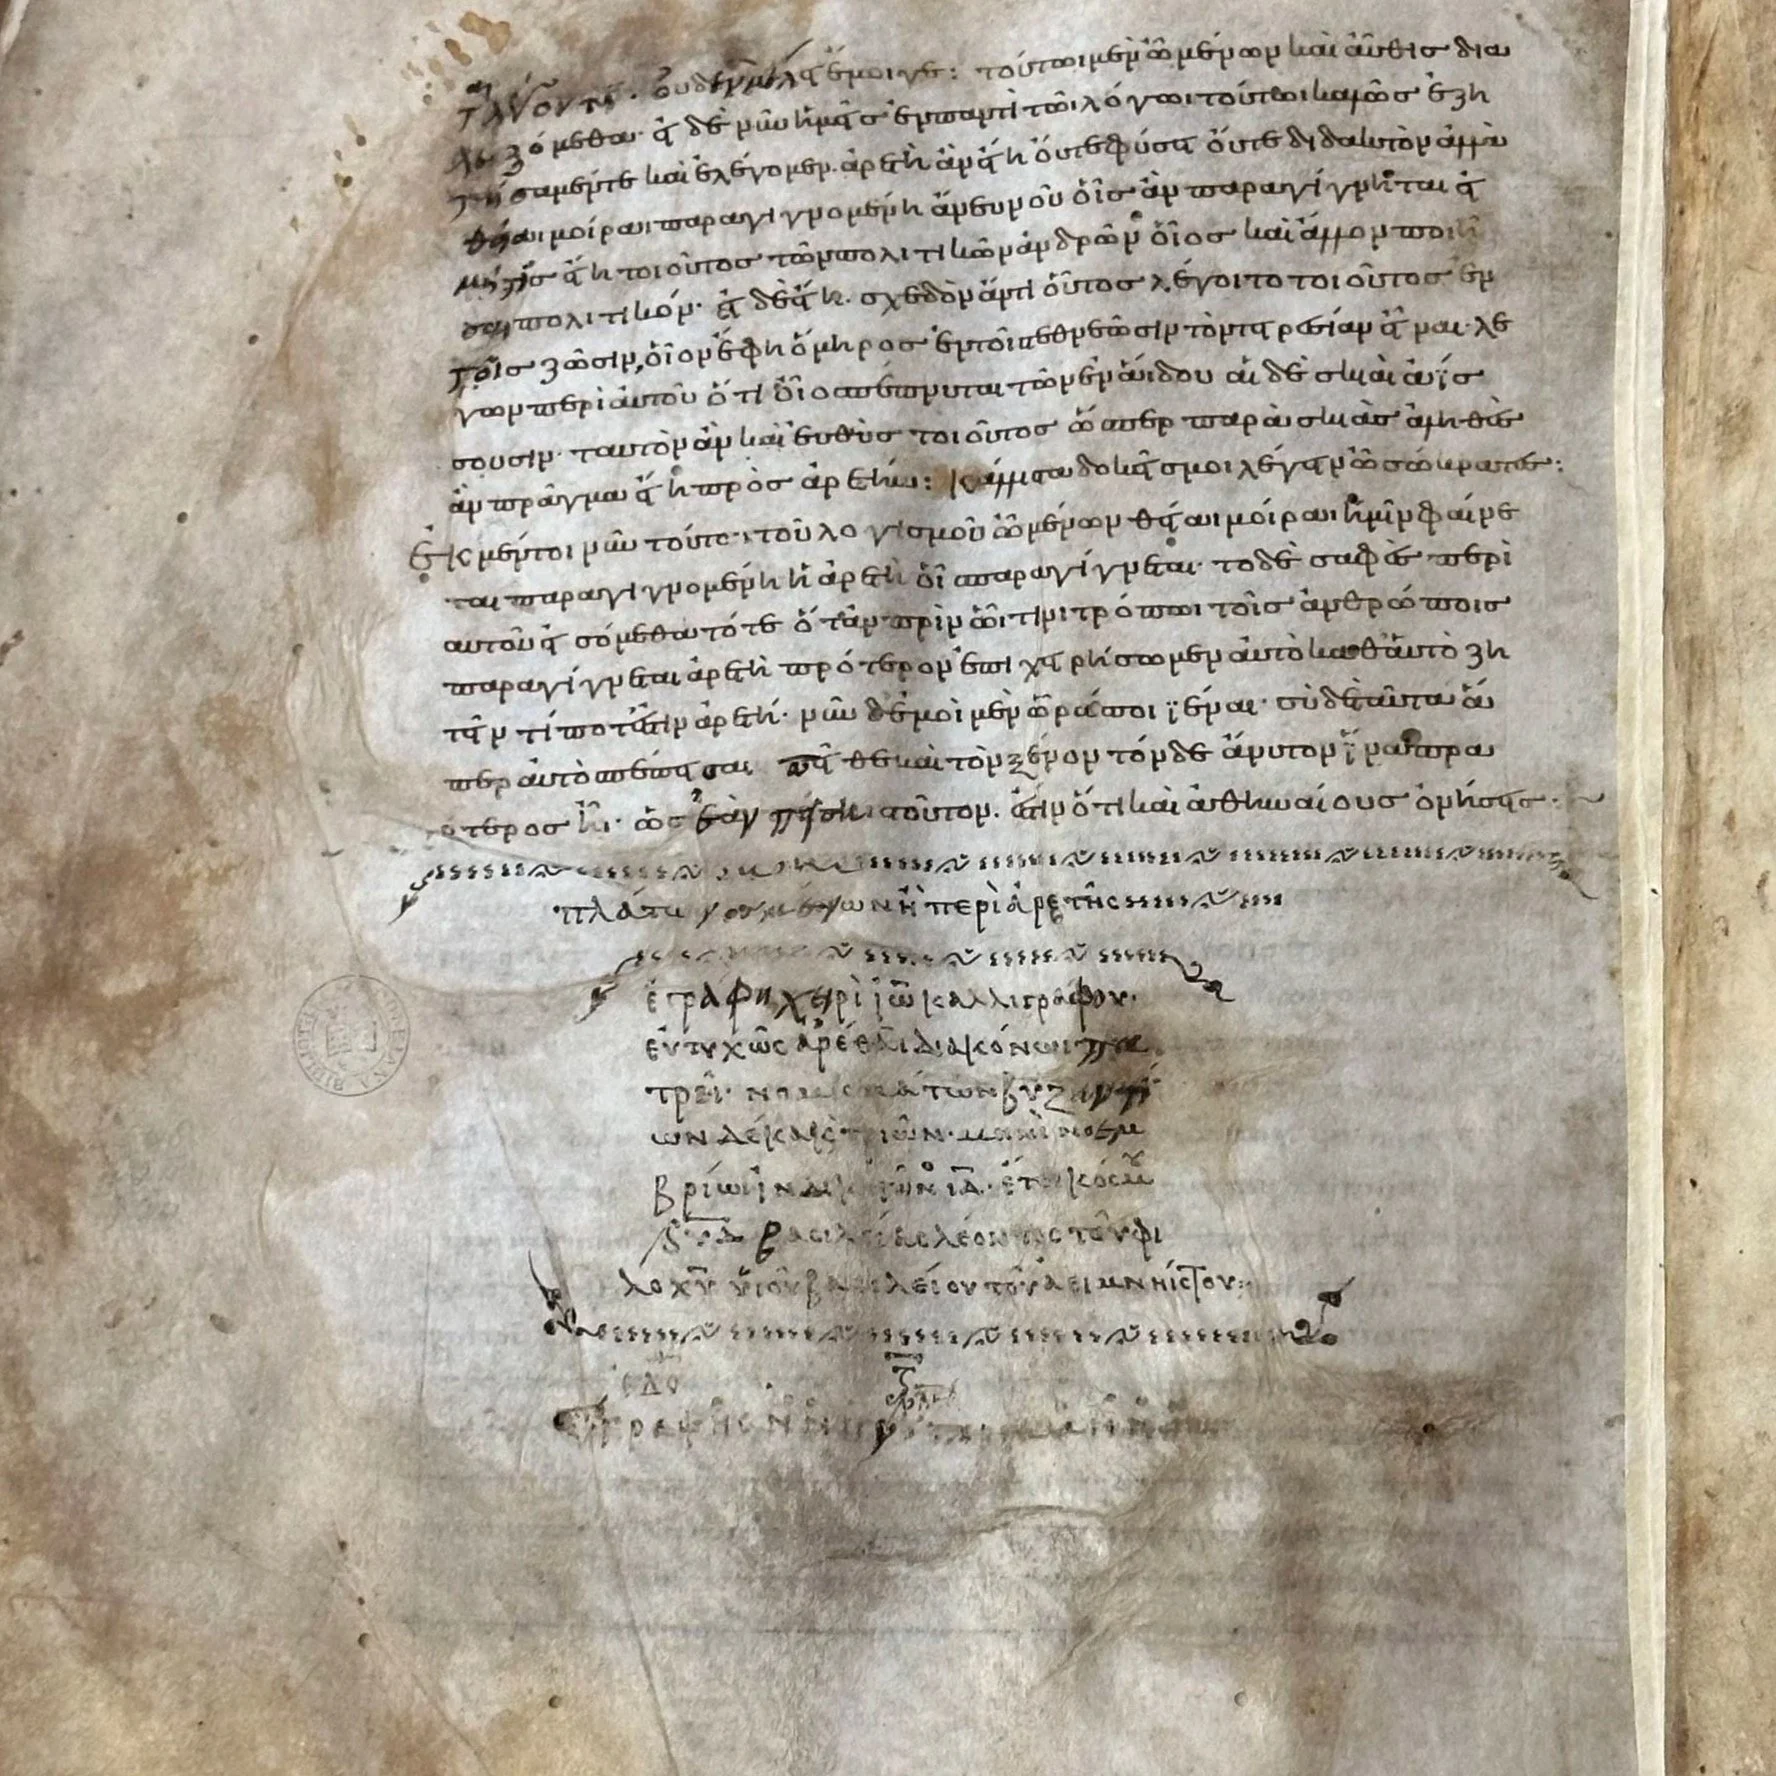 οὐδὲν μέλει ἔμοιγε: τούτωι μὲν ὦ μένων καὶ αὖθις δια
λεξόμεθα· εἰ δὲ νῦν ἡμεῖς ἐν παντὶ τῶι λόγωι τούτωι καλῶς ἐζη
τήσαμέν τε καὶ ἐλέγομεν. ἀρετὴ ἂν εἴη οὔτε φύσει οὔτε διδακτὸν ἀλλὰ
θείαι μοίραι παραγιγνομένη ἄνευ νοῦ οἷς ἂν παραγίγνηται εἰ
μή τις εἴη τοιοῦτος τῶν πολιτικῶν ἀνδρῶν οἷος καὶ ἄλλον ποιῆ
σαι πολιτικόν· εἰ δὲ εἴη. σχεδὸν ἄν τι οὗτος λέγοιτο τοιοῦτος ἐν
τοῖς ζῶσιν, οἷον ἔφη ὅμηρος ἐν τοῖς τεθνεῶσιν τὸν τειρεσίαν εἶναι· λέ
γων περὶ αὐτοῦ ὅτι οἷος πέπνυται τῶν ἐν ἅιδου αἱ δὲ σκιαὶ ἀΐσ
σουσιν· ταυτὸν ἂν καὶ εὐθὺς τοιοῦτος ὥσπερ παρὰ σκιὰς ἀληθὲς
ἂν πρᾶγμα εἴη πρὸς ἀρετήν: κάλλιστα δοκεῖς μοι λέγειν ὦ σώκρατες:
ἐκ μέντοι νῦν τούτου τοῦ λογισμοῦ ὦ μένων θείαι μοίραι ἡμῖν φαίνε
ται παραγιγνομένη ἡ ἀρετὴ οἷ παραγίγνεται· τὸ δὲ σαφὲς περὶ
αὐτοῦ εἰσόμεθα τότε ὅταν πρὶν ὧιτινι τρόπωι τοῖς ἀνθρώποις
παραγίγνεται ἀρετὴ πρότερον ἐπιχειρήσωμεν αὐτὸ καθ' αὑτὸ ζη
τεῖν τί ποτ' ἔστιν ἀρετή· νῦν δ' ἐμοὶ μὲν ὥρα ποι ϊέναι· σὺ δὲ ταῦτα ἅ
περ αὐτὸς πέπεισαι πεῖθε καὶ τὸν ξένον τόνδε ἄνυτον ἵνα πρα
ότερος ἦι· ὡς ἐὰν πείσηις τοῦτον. ἔστιν ὅτι καὶ ἀθηναίους ὀνήσεις:
πλάτωνος μένων ἢ περὶ ἀρετῆς
ἐγράφη χειρὶ ἰω καλλιγράφου·
εὐτυχῶς ἀρέθαι διακόνωι πα
τρεῖ· νομισμάτων βυζαντι
ων δέκα καὶ τριῶν· μηνὶ νοεμ
βρίωι ἰνδικτιῶνος ιδ· ἔτει κόσμου
ϛυδ βασιλείας λέοντος τοῦ φι
λοχυ υἱοῦ βασιλείου τοῦ ἀειμνήστου: